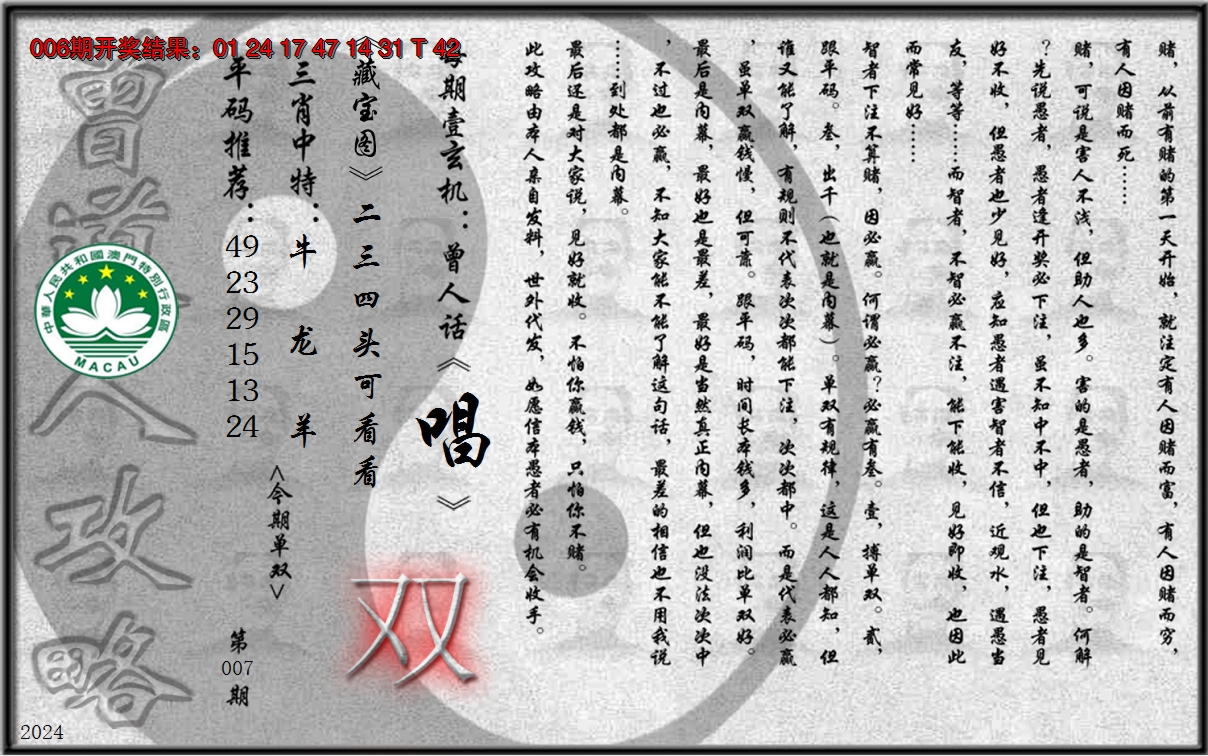 006期开奖结果：01 24 17 47 14 31 T 42
赌，从前有赌的第一天开始，就注定有人因赌而富，有人因赌而穷，
有人因赌而死……
赌，可说是害人不浅，但助人也多。害的是愚者，助的是智者。何解
？先说愚者，愚者逢开奖必下注，虽不知中不中，但也下注，愚者见
好不收，但愚者也少见好，应知愚者遇害智者不信，近观水，遇愚当
友，等等……而智者，不智必赢不注，能下能收，见好即收，也因此
而常见好……
智者下注不算赌，因必赢。何谓必赢？必赢有叁。壹，搏单双。贰，
跟平码。叁，出千（也就是内幕）。单双有规律，这是人人都知，但
谁又能了解，有规则不代表次次都能下注，次次都中。而是代表必赢
，虽单双赢钱慢，但可靠。跟平码，时间长本钱多，利润比单双好。
最后是内幕，最好也是最差，最好是当然真正内幕，但也没法次次中
，不过也必赢，不知大家能不能了解这句话，最差的相信也不用我说
……到处都是内幕。
最后还是对大家说，见好就收。不怕你赢钱，只怕你不赌。
此攻略由本人亲自发料，世外代发，如愿信本愚者必有机会收手。
每期壹玄机：曾人话《唱》
《藏宝图》二三四头可看看
双
三肖中特：牛 龙 羊
<今期单双>
平码推荐：49 23 29 15 13 24
第007期
曾道人攻略
中華人民共和國澳門特別行政區
MACAU
2024